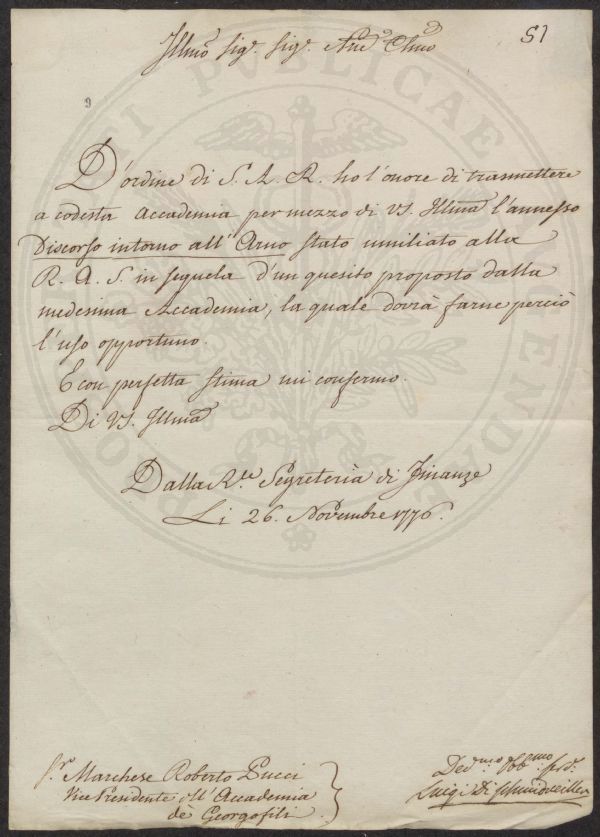 51
Illmo Sigr. Sigr. Pne Clmo
9
D'ordine di S. A. R. ho l'onore di trasmettere
a codesta Accademia per mezzo di VS. Illma l'annesso
Discorso intorno all'Arno stato umiliato alla
R. A. S. in sequela d'un quesito proposto dalla
medesima Accademia, la quale dovrà farne perciò
l'uso opportuno.
E con perfetta stima mi confermo.
Di VS. Illma
Dalla Rle Segreteria di Finanze
Li 26. Novembre 1776.
Sr. Marchese Roberto Pucci
Vice Presidente dell'Accademia
de Georgofili
Devmo Obbmo Serv.
Luigi Di Schmidveiller
PROSPERITATI PUBLICAE AUGENDAE